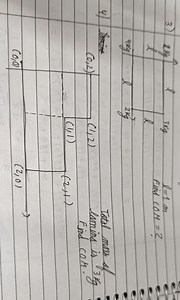 3)
l
3kg
l
l
4kg
l
2kg
l = 1 m
Find COM = ?
4)
(0,2)
(1,2)
(1,1)
(2,1)
(0,0)
(2,0)
Total mass of
lamina is 3 kg
Find COM. ?